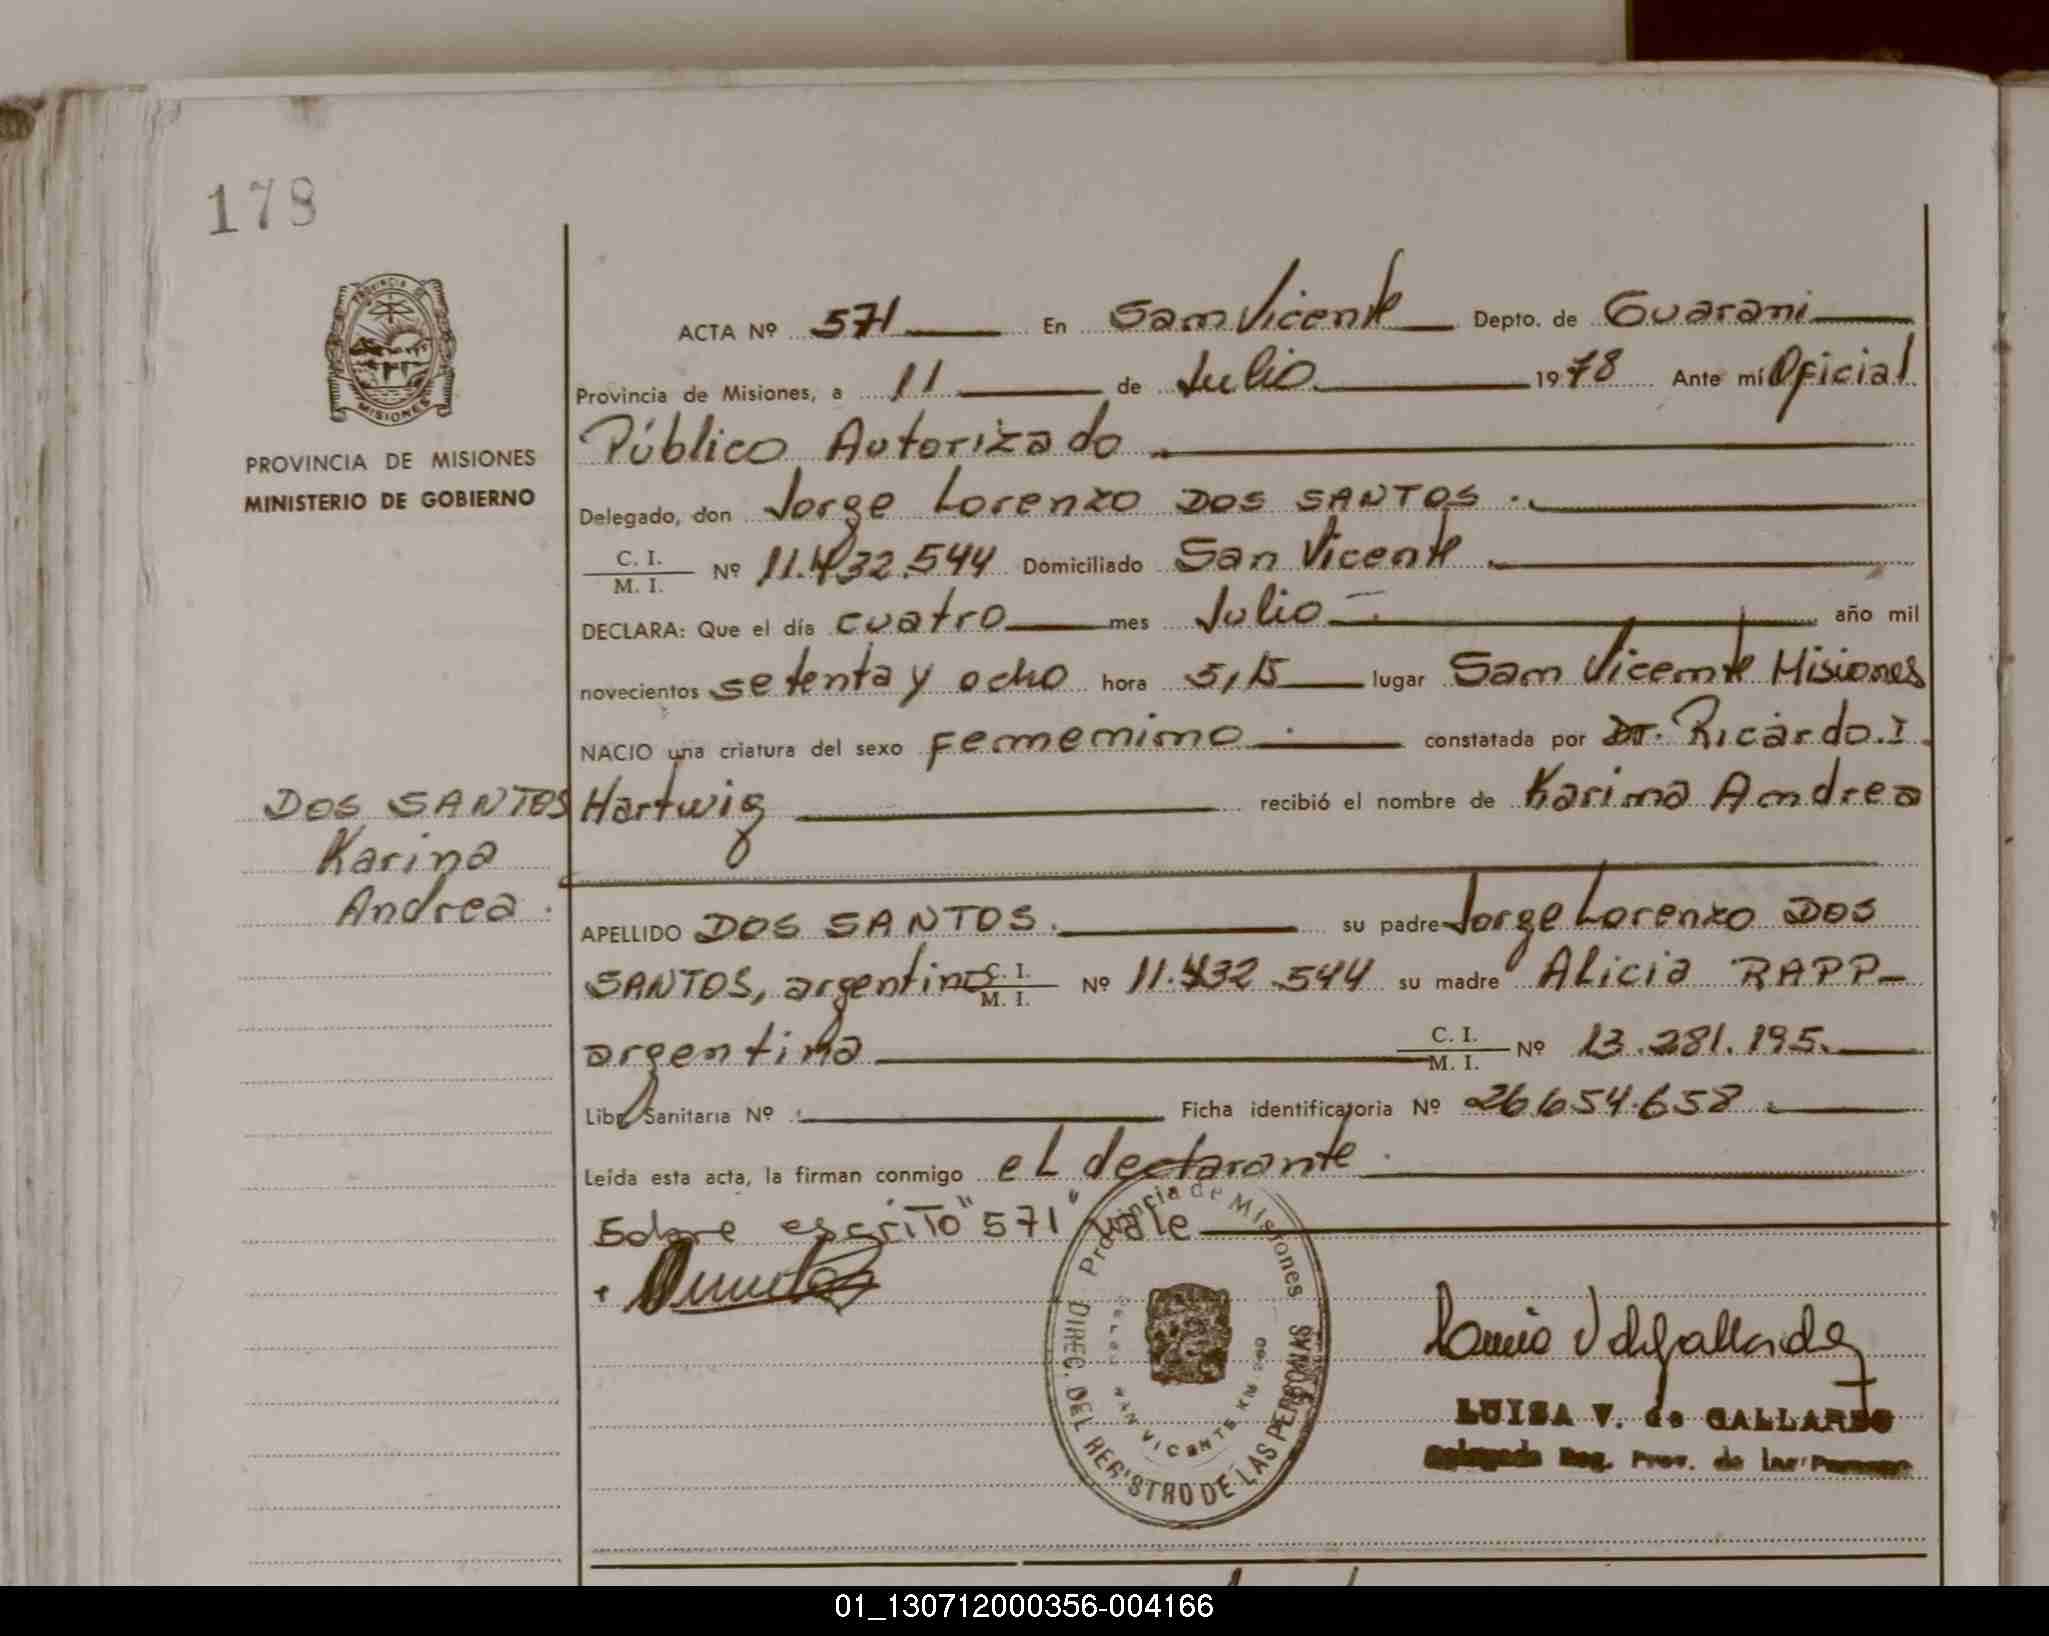 178
PROVINCIA DE MISIONES
MISIONES
PROVINCIA DE MISIONES
MINISTERIO DE GOBIERNO
ACTA Nº 571 En San Vicente Depto. de Guarani
Provincia de Misiones, a 11 de Julio 1978 Ante mí Oficial
Público Autorizado
Delegado, don Jorge Lorenzo DOS SANTOS.
C. I.
M. I.
Nº 11.432.544 Domiciliado San Vicente
DECLARA: Que el día cuatro mes Julio año mil
novecientos setenta y ocho hora 5,15 lugar San Vicente Misiones
NACIO una criatura del sexo femenino constatada por Dr. Ricardo.I.
Hartwig recibió el nombre de Karina Andrea
DOS SANTOS
Karina
Andrea.
APELLIDO DOS SANTOS. su padre Jorge Lorenzo DOS
SANTOS, argentino C. I. M. I. Nº 11.432.544 su madre Alicia RAPP-
argentina C. I. M. I. Nº 13.281.195.
Libr. Sanitaria Nº Ficha identificatoria Nº 26.654.658
Leída esta acta, la firman conmigo el declarante.
Sobre escrito "571" vale
Provincia de Misiones
DIREC. DEL REGISTRO DE LAS PERSONAS
SAN VICENTE KM.
LUISA V. de GALLARDO
Reg. Prov. de las Personas
01_130712000356-004166